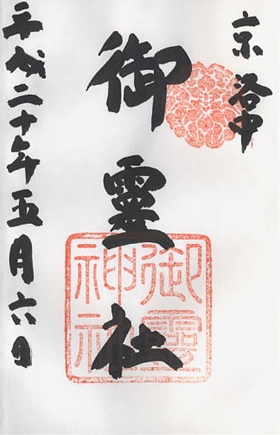 京 洛中
御靈社
御靈神社
平成二十年五月六日